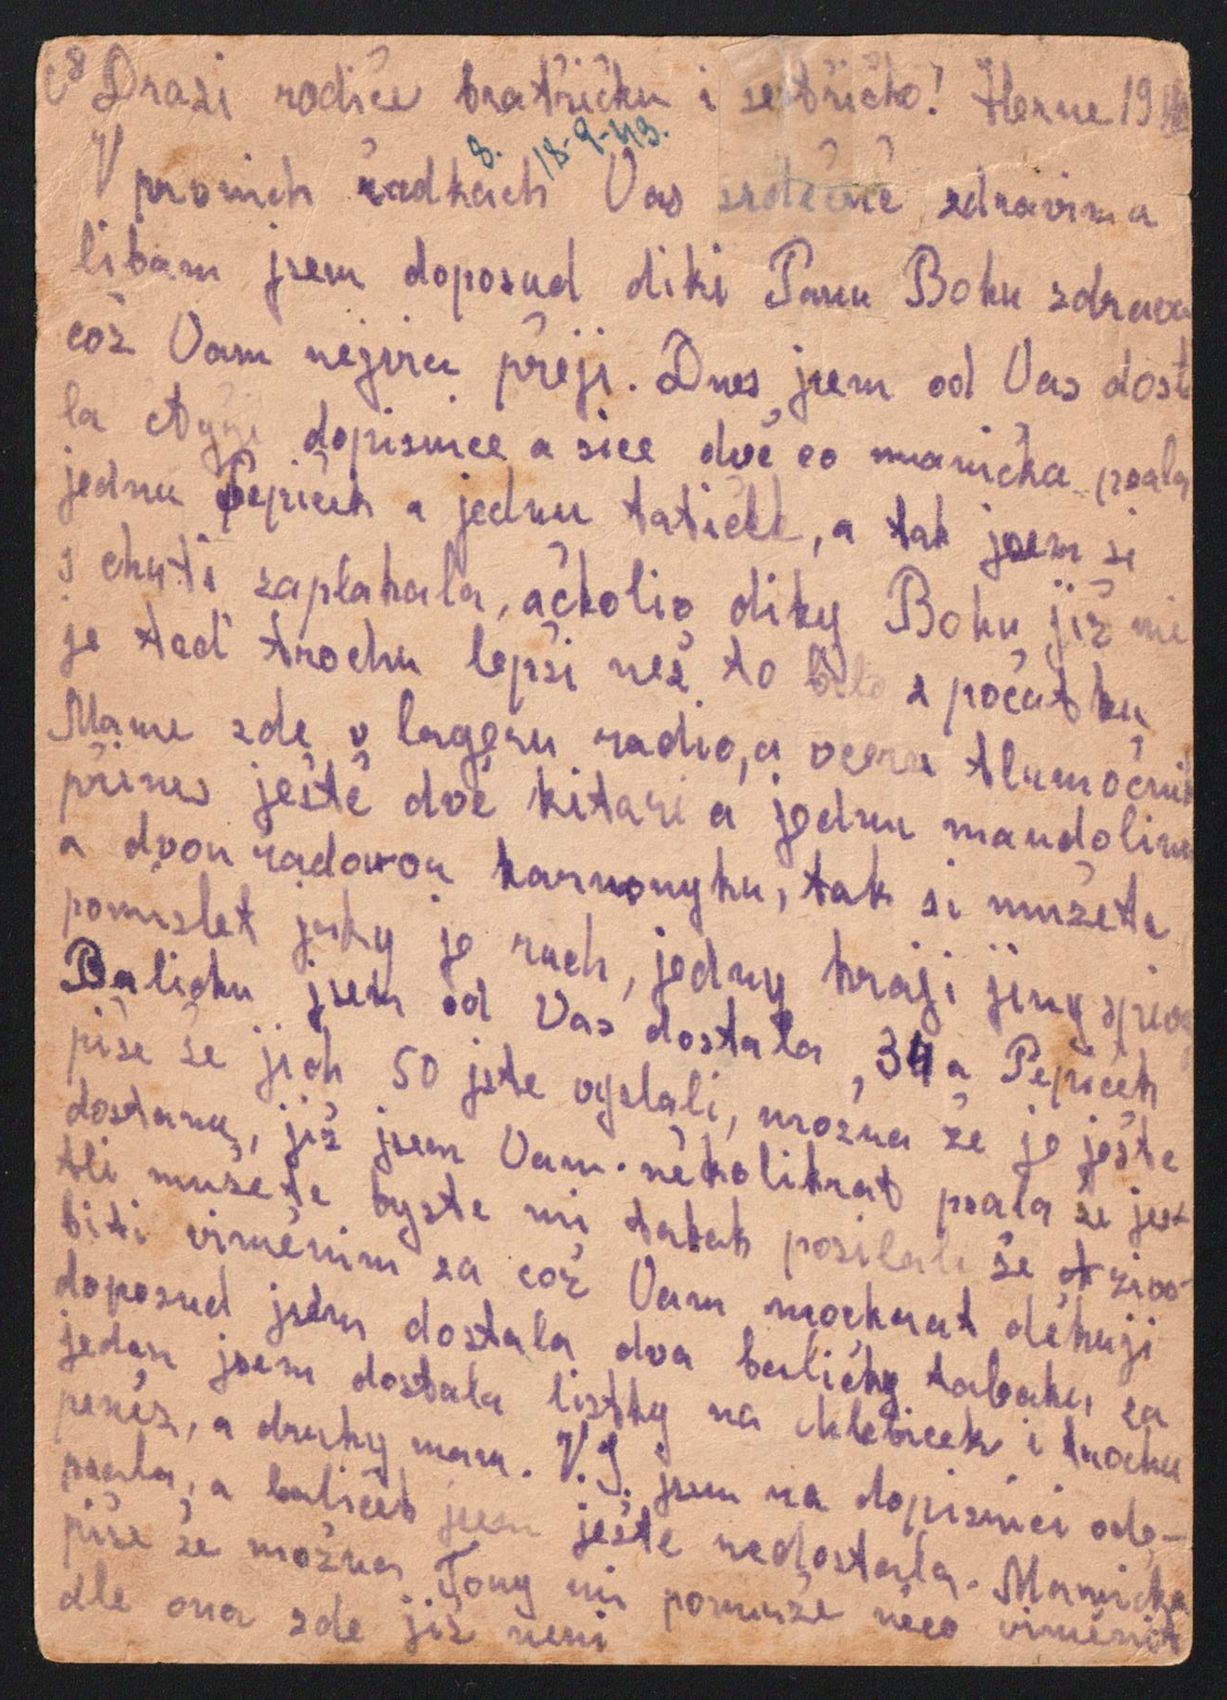 8 Drazi rodiče bratřičku i sestřičko! Herne 19
8. 18-9-43.
V prvnich řadkach Vas srdečně zdravim a
libam jsem doposud diki Panu Bohu zdrava
což Vam nejvic přeji. Dnes jsem od Vas dost
la čtyři dopisnice a sice dvě co mamička psala
jednu Pepiček a jednu tatiček, a tak jsem si
s chuti zaplakala, ačkoliv diky Bohu již mi
je teď trochu lepši než to bilo z počatku
Mame zde v lageru radio, a včera tlumočnik
přines ještě dvě kitari a jednu mandolinu
a dvou řadovou harmonyku, tak si mužete
pomislet jaky je ruch, jedny hraji jiny
Baličku jsem od Vas dostala, 34 a Pepiček
piše še jich 50 jste vyslali, možna že je ješte
dostanu, již jsem Vam několikrat psala že jest
tli mužete byste mi tabak posilali še živo-
biti viměnim za což Vam mockrat děkuji
doposud jsem dostala dva baličky tabaku, za
jeden jsem dostala listky na chlebiček i trochu
peněz, a druhy mam. V.J. jsem na dopisnici ode-
psala, a baliček jsem ješte nedostala. Mamička
piše že možna Tony mi pomuže něco viměnit
ale ona zde již neni